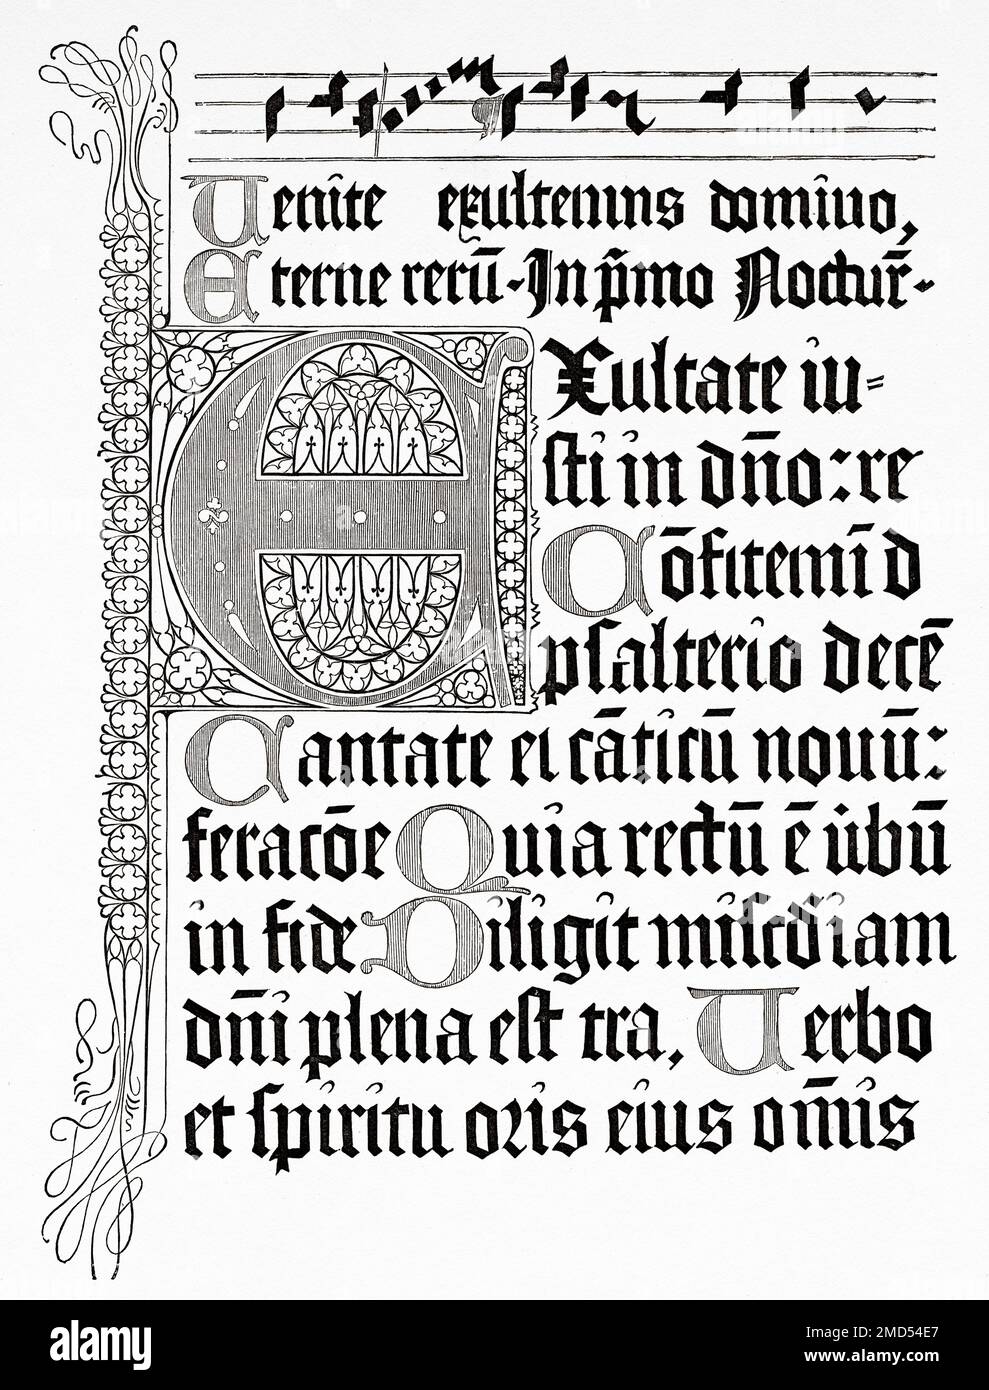 Uenite exultemus domino,
Eterne rerū. In p̄mo Nocturɴ̄.
EXultate iu=
sti in dn̄o: re
Cōfitemī d
psalterio decē
Cantate ei cāticū nouū:
feracōe Quia rectū ē ūbū
in fide Diligit miſcdiam
dn̄i plena est tra, Uerbo
et spiritu oris eius om̄is
alamy
Image ID: 2MD54E7
www.alamy.com